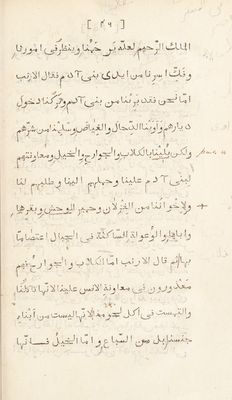 [ ٤٦ ]
الملك الرحيم لعلّه يرحمنا وينظر فى امورنا
ويفكّ اسرنا من ايدى بنى آدم فقال الارنب
امّا نحن فقد برئنا من بنى آدم وتركنا دخول
ديارهم وأوينا الدحال والغياض وسلمنا من شرّهم
ولكن بُلينا بالكلاب والجوارح والخيل ومعاونتهم
لبنى آدم علينا وحملهم الينا وطلبهم لنا
ولاخواننا من الغزلان وحمير الوحش وبقرها
والوعول الساكنة فى الجبال اعتصاما
بها ثم قال الارنب امّا الكلاب والجوارح فهم
معذورون فى معاونة الانس علينا لانها تاكلنا
فى أكل لحومنا لانها ليست من أبناء
جنسنا بل من السباع وامّا الخيل فانّها